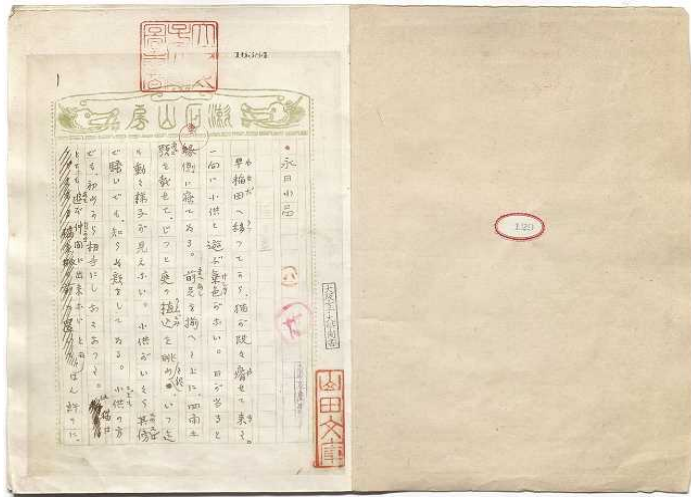 漱石山房
永日小品
早稲田へ移つてから、猫が段々瘠せて来た。
一向に小供と遊ぶ氣色がない。日が当ると
縁側に寐てゐる。前足を揃へた上に、四角な
顎を載せて、じつと庭の植込を眺めた、いつ迄
も動く様子が見えない。小供がいくら其傍
で騒いでも、知らぬ顔をしてゐる。小供の方
でも、初めから相手にしなくなつた。此猫は
とても遊び仲間に出来ないと
山田文庫
129